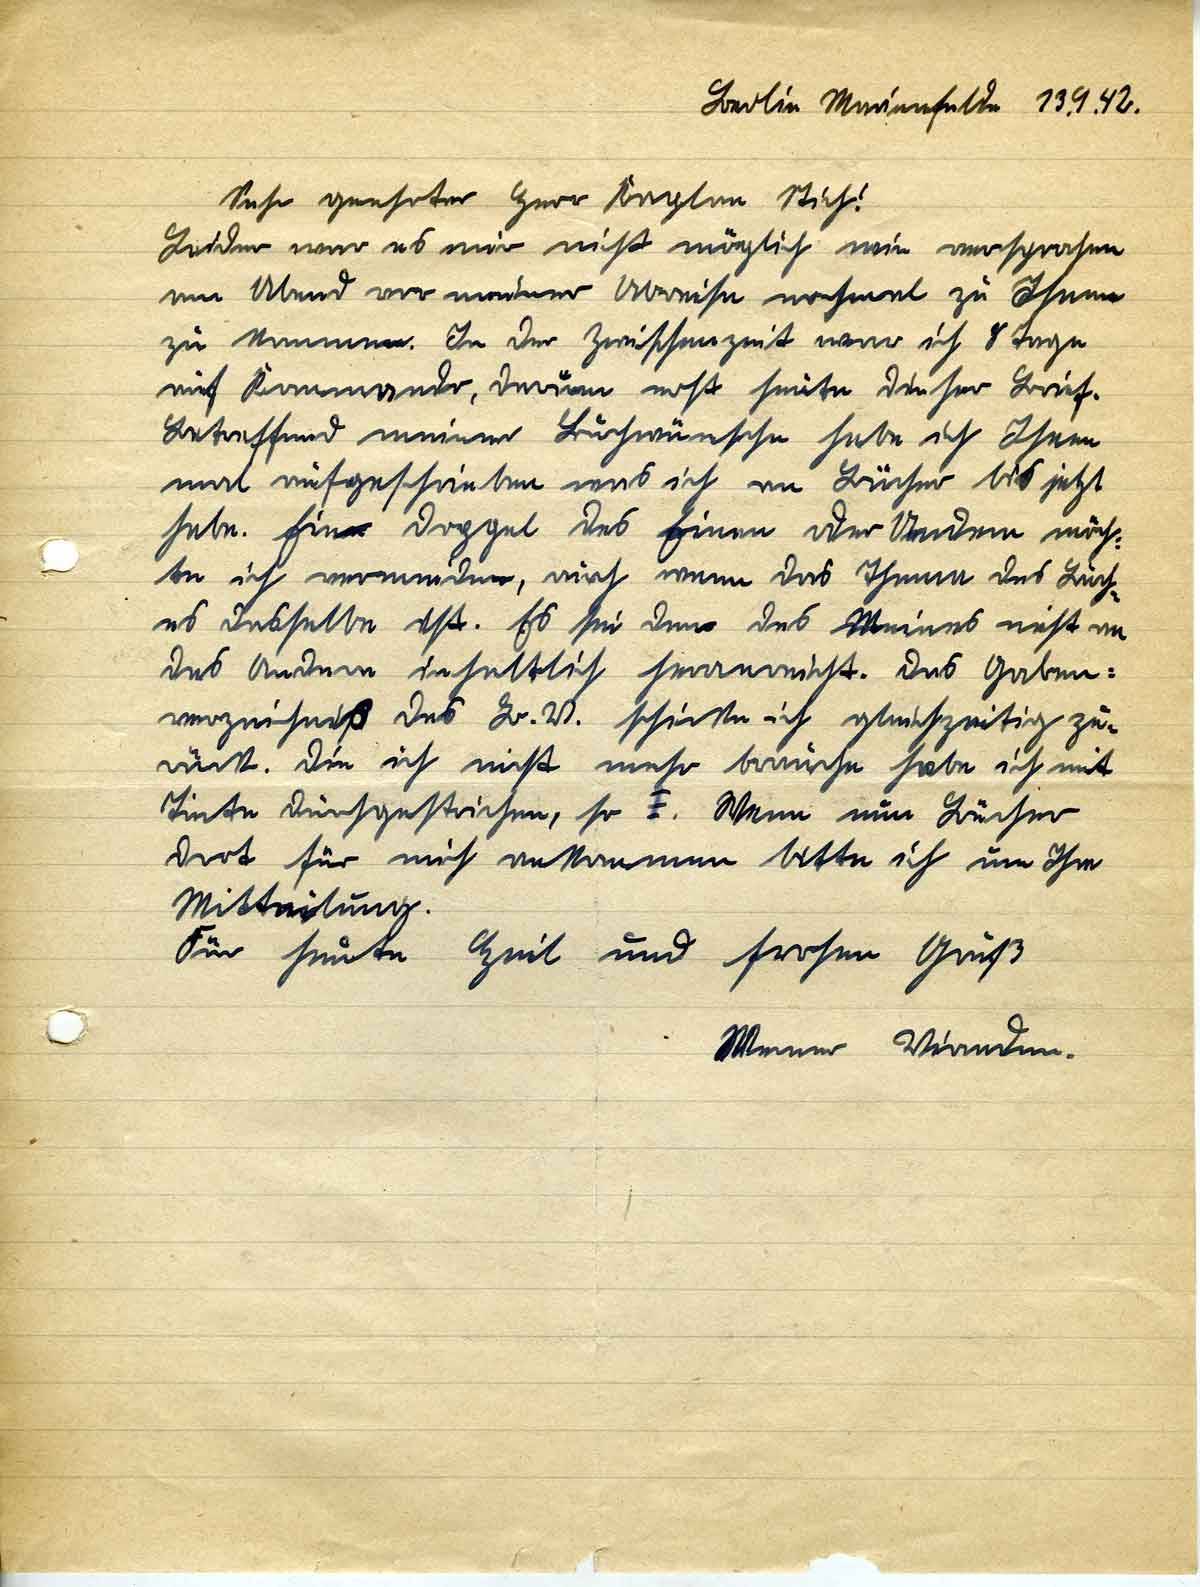 Berlin Marienfelde 13.9.42.
Sehr geehrter Herr Kaplan Stich!
Leider war es mir nicht möglich wie versprochen
am Abend vor meiner Abreise nochmal zu Ihnen
zu kommen. In der Zwischenzeit war ich 8 Tage
auf Kommando, darum erst heute dieser Brief.
Betreffend meiner Buchwünsche habe ich Ihnen
mal aufgeschrieben was ich an Bücher bis jetzt
habe. Ein Doppel des Einen oder Andern möch=
te ich vermeiden, auch wenn das Thema des Buch=
es dasselbe ist. Es sei denn das Meines nicht an
das Andere inhaltlich heranreicht. Das Gaben=
verzeichniß des B.V. schicke ich gleichzeitig zu=
rück. Die ich nicht mehr brauche habe ich mit
Tinte durchgestrichen, so I. Wenn nun Bücher
dort für mich ankommen bitte ich um Ihre
Mitteilung.
Für heute Heil und frohen Gruß
Werner Vianden.